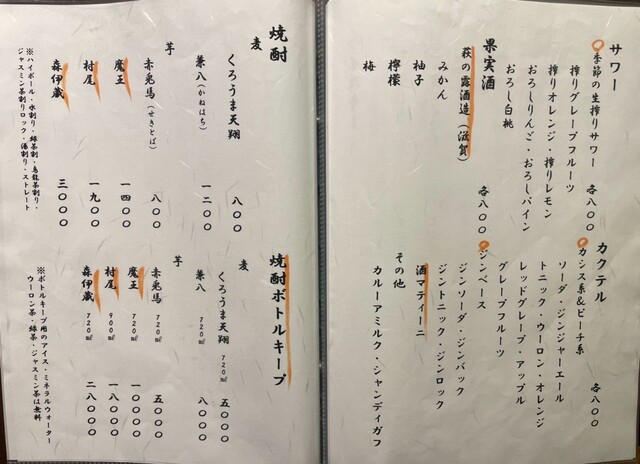 サワー
季節の生搾りサワー 各八〇〇
搾りグレープフルーツ
搾りオレンジ・搾りレモン
おろしりんご・おろしパイン
おろし白桃
果実酒
萩の露酒造（滋賀） 各八〇〇
みかん
柚子
檸檬
梅
カクテル
カシス系&ピーチ系 各八〇〇
ソーダ・ジンジャーエール
トニック・ウーロン・オレンジ
レッドグレープ・アップル
グレープフルーツ
ジンベース
ジンソーダ・ジンバック
ジントニック・ジンロック
酒マティーニ
その他
カルーアミルク・シャンディガフ
焼酎
麦
くろうま天翔 八〇〇
兼八（かねはち） 一二〇〇
芋
赤兎馬（せきとば） 八〇〇
魔王 一四〇〇
村尾 一九〇〇
森伊蔵 三〇〇〇
※ハイボール・水割り・緑茶割・烏龍茶割り・
ジャスミン茶割りロック・湯割り・ストレート
焼酎ボトルキープ
麦
くろうま天翔 720㎖ 五〇〇〇
兼八 720㎖ 八〇〇〇
芋
赤兎馬 720㎖ 五〇〇〇
魔王 720㎖ 一〇〇〇〇
村尾 900㎖ 一八〇〇〇
森伊蔵 720㎖ 二八〇〇〇
※ボトルキープ用のアイス・ミネラルウォーター
ウーロン茶・緑茶・ジャスミン茶は無料